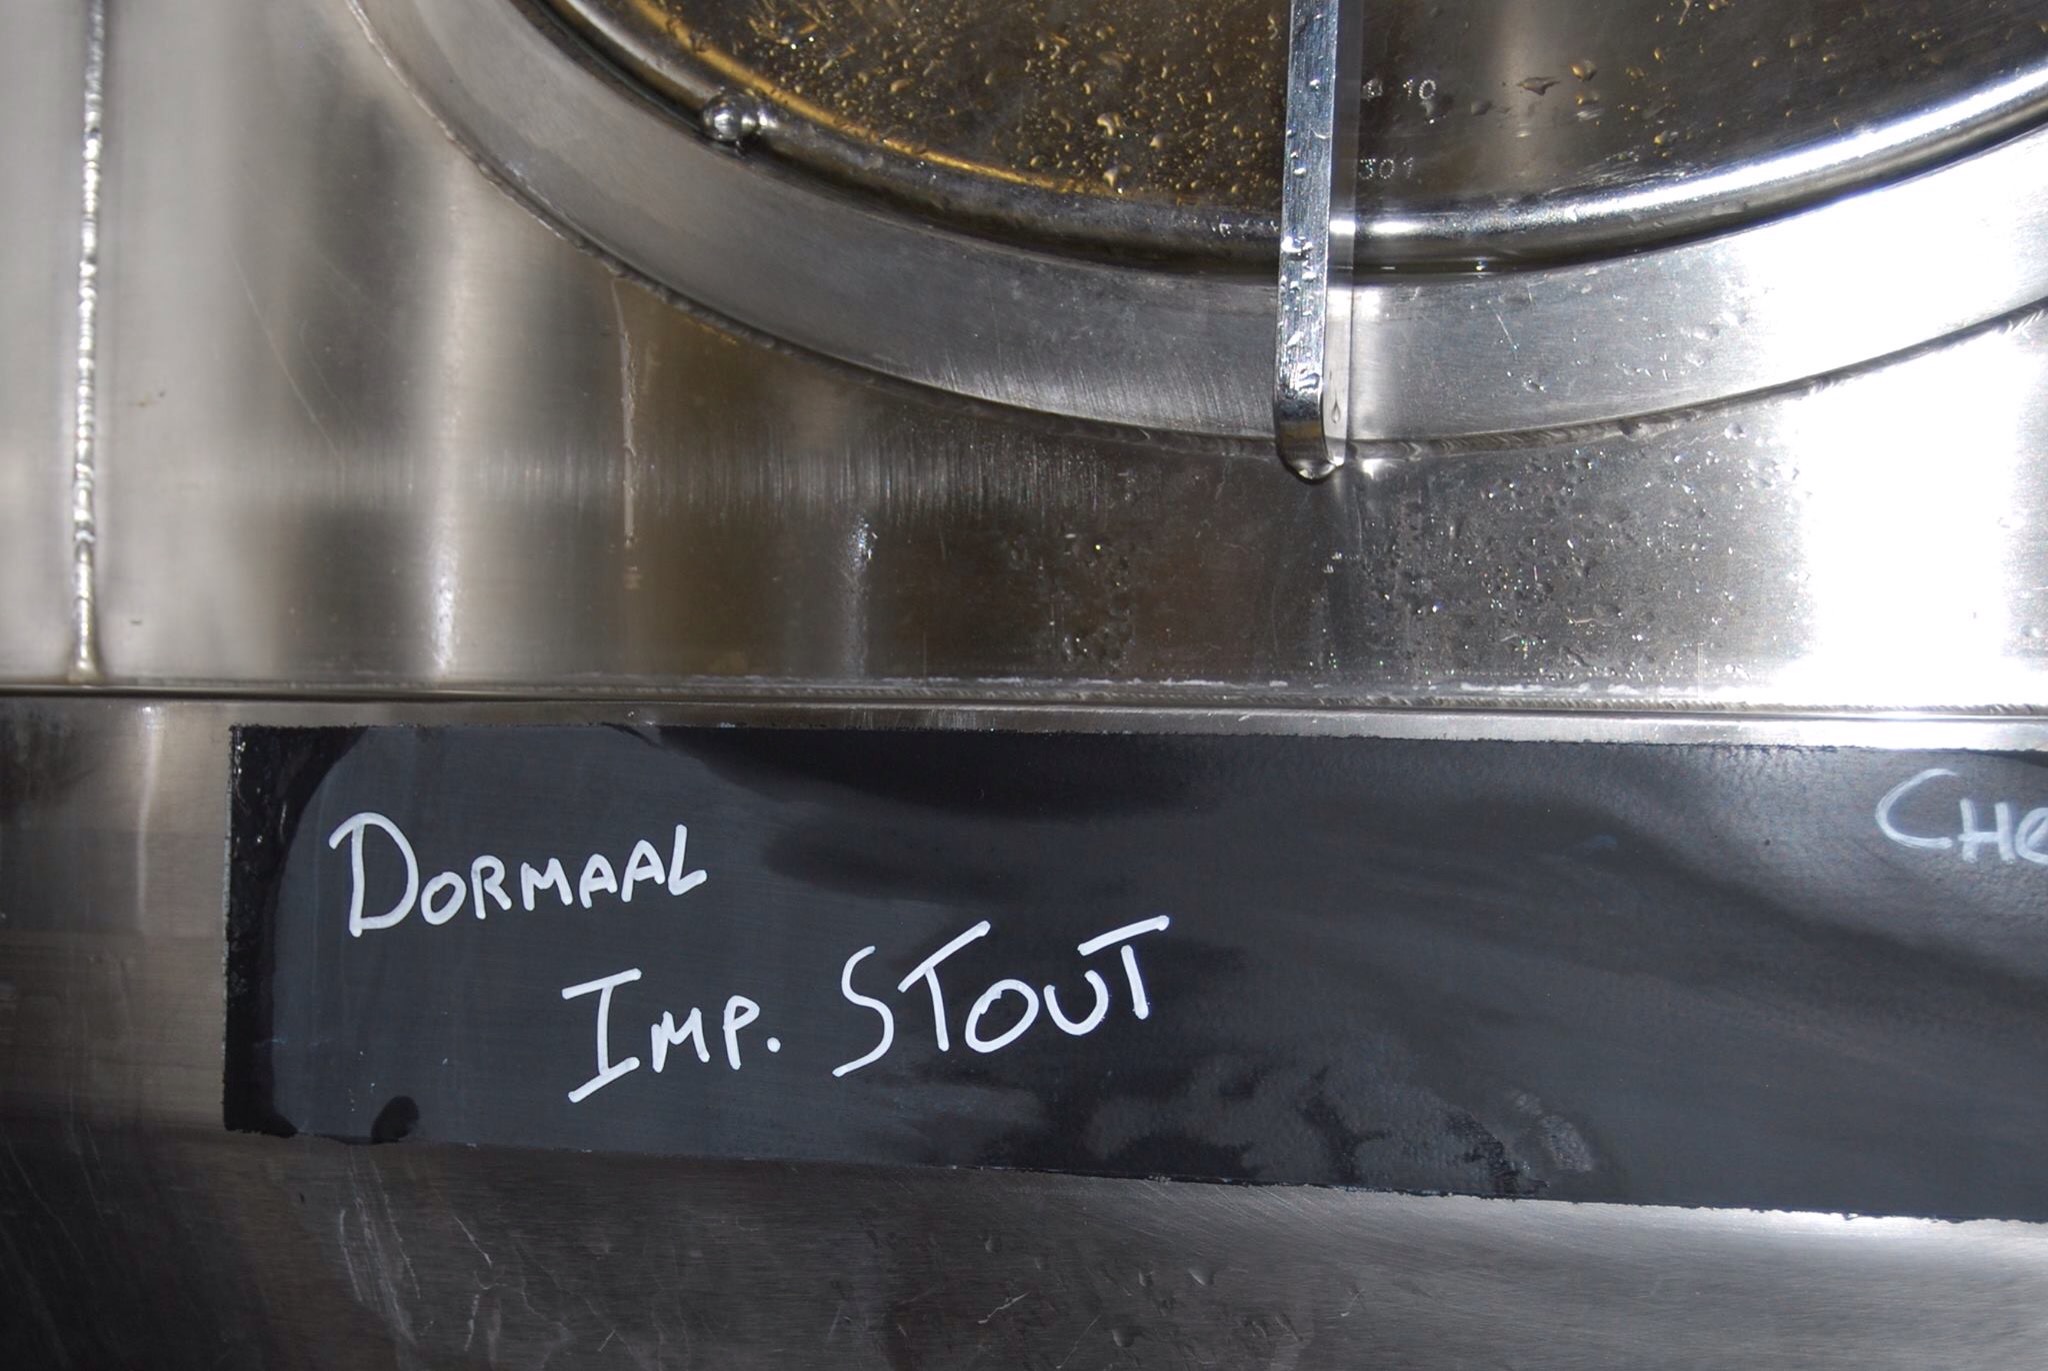 10
301
DORMAAL
IMP. STOUT